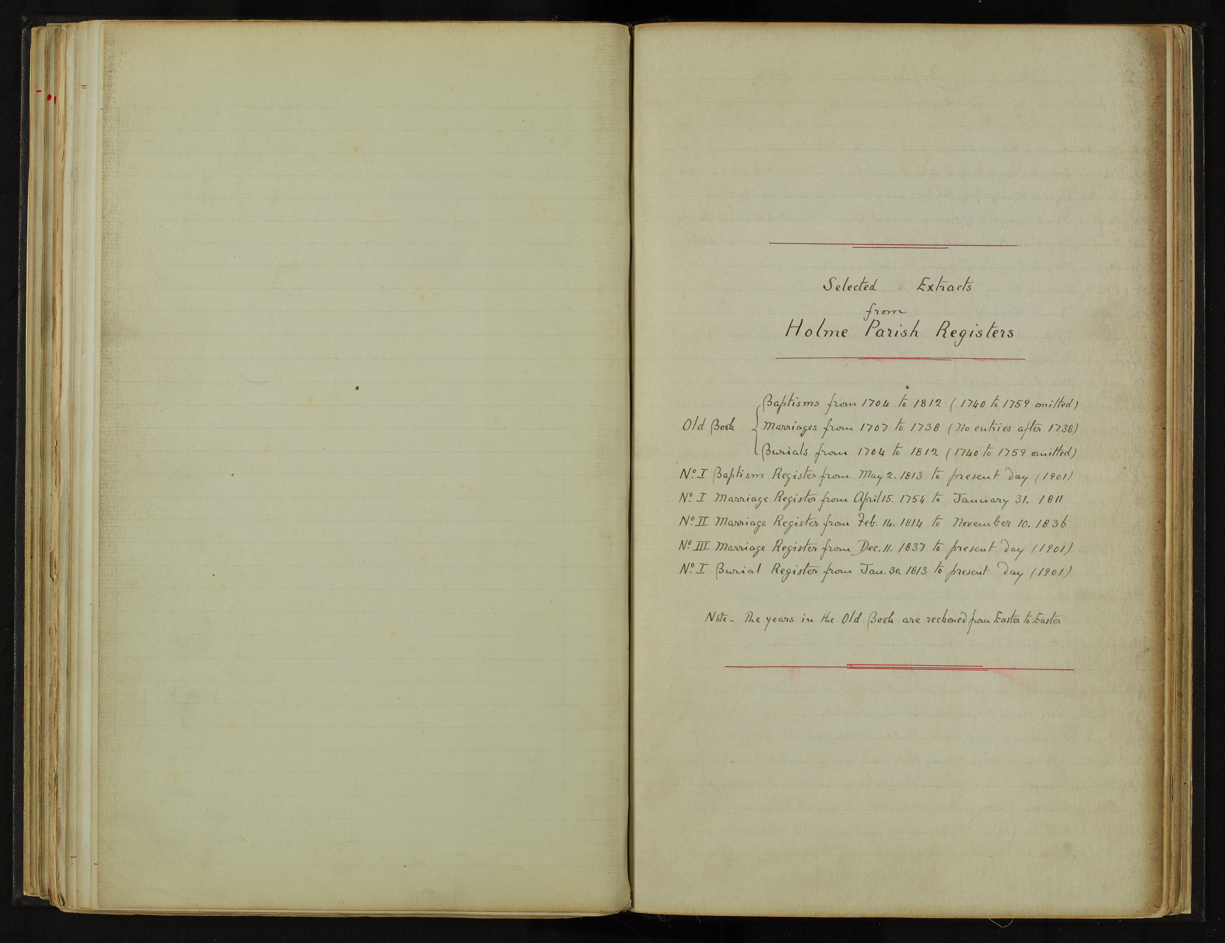 Selected Extracts
from
Holme Parish Registers
Baptisms from 1704 to 1812 (1740 to 1759 omitted)
Old Book { Marriages from 1707 to 1738 (No entries after 1738)
Burials from 1704 to 1812 (1740 to 1759 omitted)
No. I Baptism Register from May 2. 1813 to present day (1901)
No. I Marriage Register from April 15. 1754 to January 31. 1811
No. II Marriage Register from Feb. 14. 1814 to November 10. 1836
No. III Marriage Register from Dec. 11. 1837 to present day (1901)
No. I Burial Register from Jan. 30. 1813 to present day (1901)
Note - The years in the Old Book are reckoned from Easter to Easter